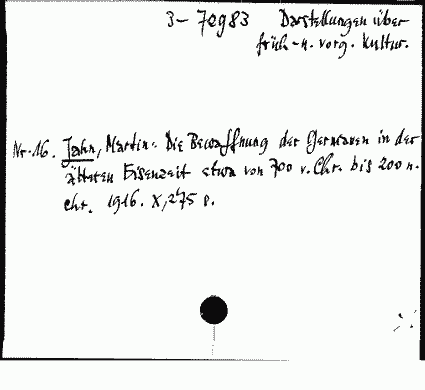 3-70983 Darstellungen über
früh- u. vorg. Kultur.
Nr. 16. Jahn, Martin: Die Bewaffnung der Germanen in der
älteren Eisenzeit etwa von 700 v. Chr. bis 200 n.
Chr. 1916. X, 275 S.